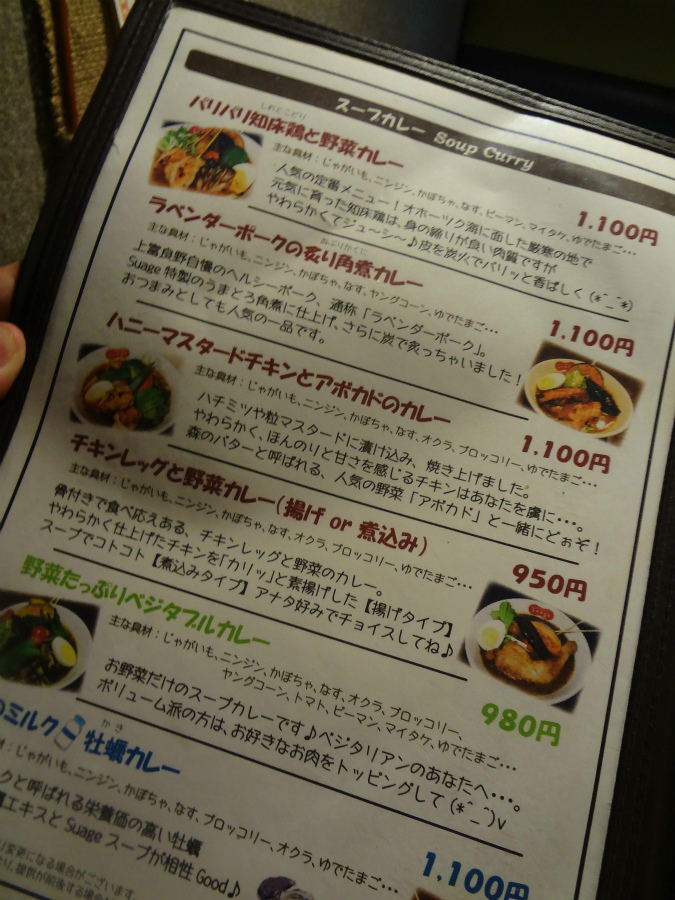 スープカレー Soup Curry
しれとこどり
パリパリ知床鶏と野菜カレー
主な具材：じゃがいも、ニンジン、かぼちゃ、なす、ピーマン、マイタケ、ゆでたまご…
1.100円
人気の定番メニュー！オホーツク海に面した厳寒の地で
元気に育った知床鶏は、身の締りが良い肉質ですが
やわらかくてジュ〜シ〜♪皮を炭火でパリッと香ばしく(*^_^*)
あぶりかくに
ラベンダーポークの炙り角煮カレー
主な具材：じゃがいも、ニンジン、かぼちゃ、なす、ヤングコーン、ゆでたまご…
1.100円
上富良野自慢のヘルシーポーク、通称「ラベンダーポーク」。
Suage特製のうまとろ角煮に仕上げ、さらに炭で炙っちゃいました！
おつまみとしても人気の一品です。
ハニーマスタードチキンとアボカドのカレー
主な具材：じゃがいも、ニンジン、かぼちゃ、なす、オクラ、ブロッコリー、ゆでたまご…
1.100円
ハチミツや粒マスタードに漬け込み、焼き上げました。
やわらかく、ほんのりと甘さを感じるチキンはあなたを虜に・・・。
森のバターと呼ばれる、人気の野菜「アボカド」と一緒にどぉぞ！
チキンレッグと野菜カレー(揚げ or 煮込み)
主な具材：じゃがいも、ニンジン、かぼちゃ、なす、オクラ、ブロッコリー、ゆでたまご…
950円
骨付きで食べ応えある、チキンレッグと野菜のカレー。
やわらかく仕上げたチキンを「カリッ」と素揚げした【揚げタイプ】
スープでコトコト【煮込みタイプ】アナタ好みでチョイスしてね♪
野菜たっぷりベジタブルカレー
主な具材：じゃがいも、ニンジン、かぼちゃ、なす、オクラ、ブロッコリー、
ヤングコーン、トマト、ピーマン、マイタケ、ゆでたまご…
980円
お野菜だけのスープカレーです♪ベジタリアンのあなたへ・・・。
ボリューム派の方は、お好きなお肉をトッピングして(*^_^)v
かき
のミルク 牡蠣カレー
材：じゃがいも、ニンジン、かぼちゃ、なす、ブロッコリー、オクラ、ゆでたまご…
1.100円
クと呼ばれる栄養価の高い牡蠣
エキスとSuageスープが相性Good♪
変更になる場合がございます。
提供が前後する場合